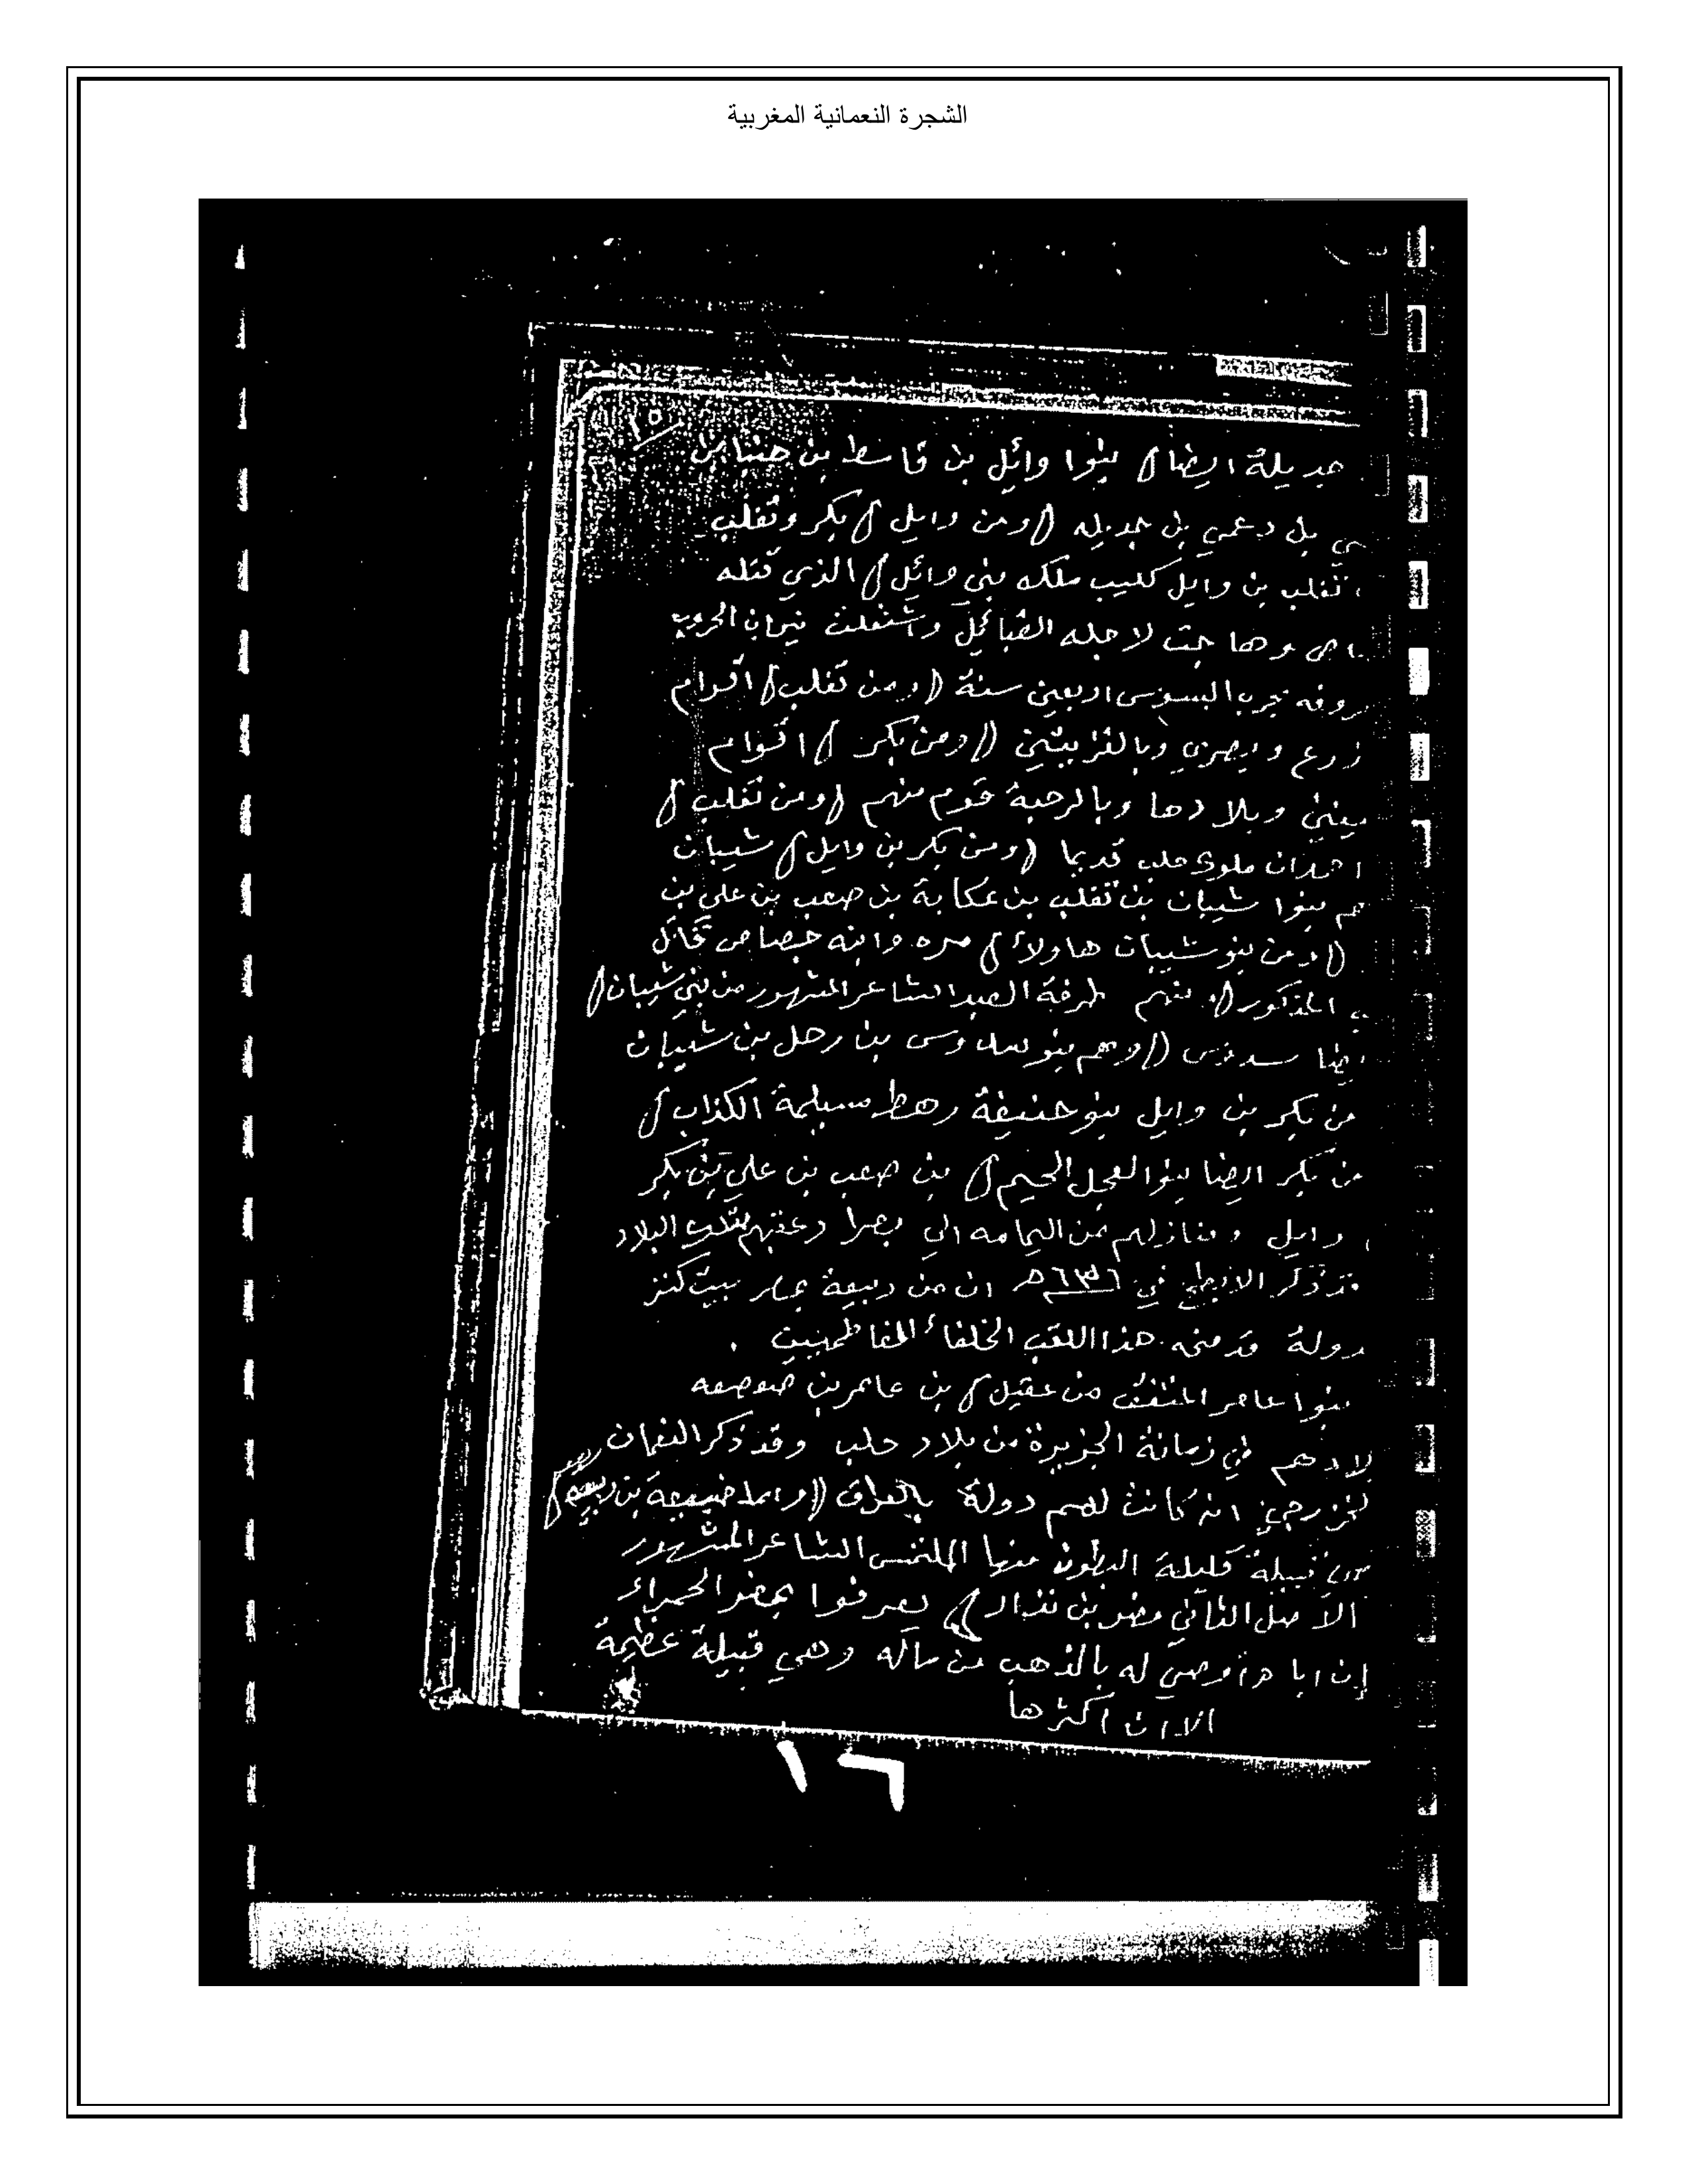 الشجرة النعمانية المغربية
١٥
جديلة ايضا) بنوا وائل بن قاسط بن هنبا بن
بل دعمي بن جديله (ومن وايل) بكر وتغلب
تغلب بن وايل كليب ملك بني وائل) الذي قتله
وهاجت لاجله القبائل واشتعلت نيران الحروب
بحرب البسوس اربعين سنة (ومن تغلب) اقوام
زرع وبصري وبالقريتين (ومن بكر) اقوام
وبلادها وبالرحبة قوم منهم (ومن تغلب)
ملوك حلب قديما (ومن بكر بن وايل) شيبان
بنوا شيبان بن تغلب بن عكابة بن صعب بن علي بن
(ومن بنو شيبان هاولاء) مره وابنه
المذكور (منهم طرفة العبد الشاعر المشهور من بني شيبان)
سدوس (وهم بنو سدوس بن رحل بن شيبان
من بكر بن وايل بنو حنيفة رهط مسيلمة الكذاب)
من بكر ايضا بنوا لعجل الحيم) بن صعب بن علي بن بكر
وايل ومنازلهم من اليمامه الي بصرا البلاد
في ان من ربيعة بيت كنز
دولة قد منحه هذا اللقب الخلفاء الفاطميين .
بنوا عامر المنتفق من عقيل) بن عامر بن صعصعه
في زمانة الجزيرة من بلاد حلب وقد ذكر النعمان
انه كانت لهم دولة بالعراق (واما ضبيعة بن ربيعه)
قبيلة قليلة البطون منها الملتمس الشاعر المشهور
الاصل الثاني مضر بن نزار) يعرفوا بمضر الحمراء
إن اباه اوصي له بالذهب من ماله وهي قبيلة عظيمة
الا ان اكثرها
١٦